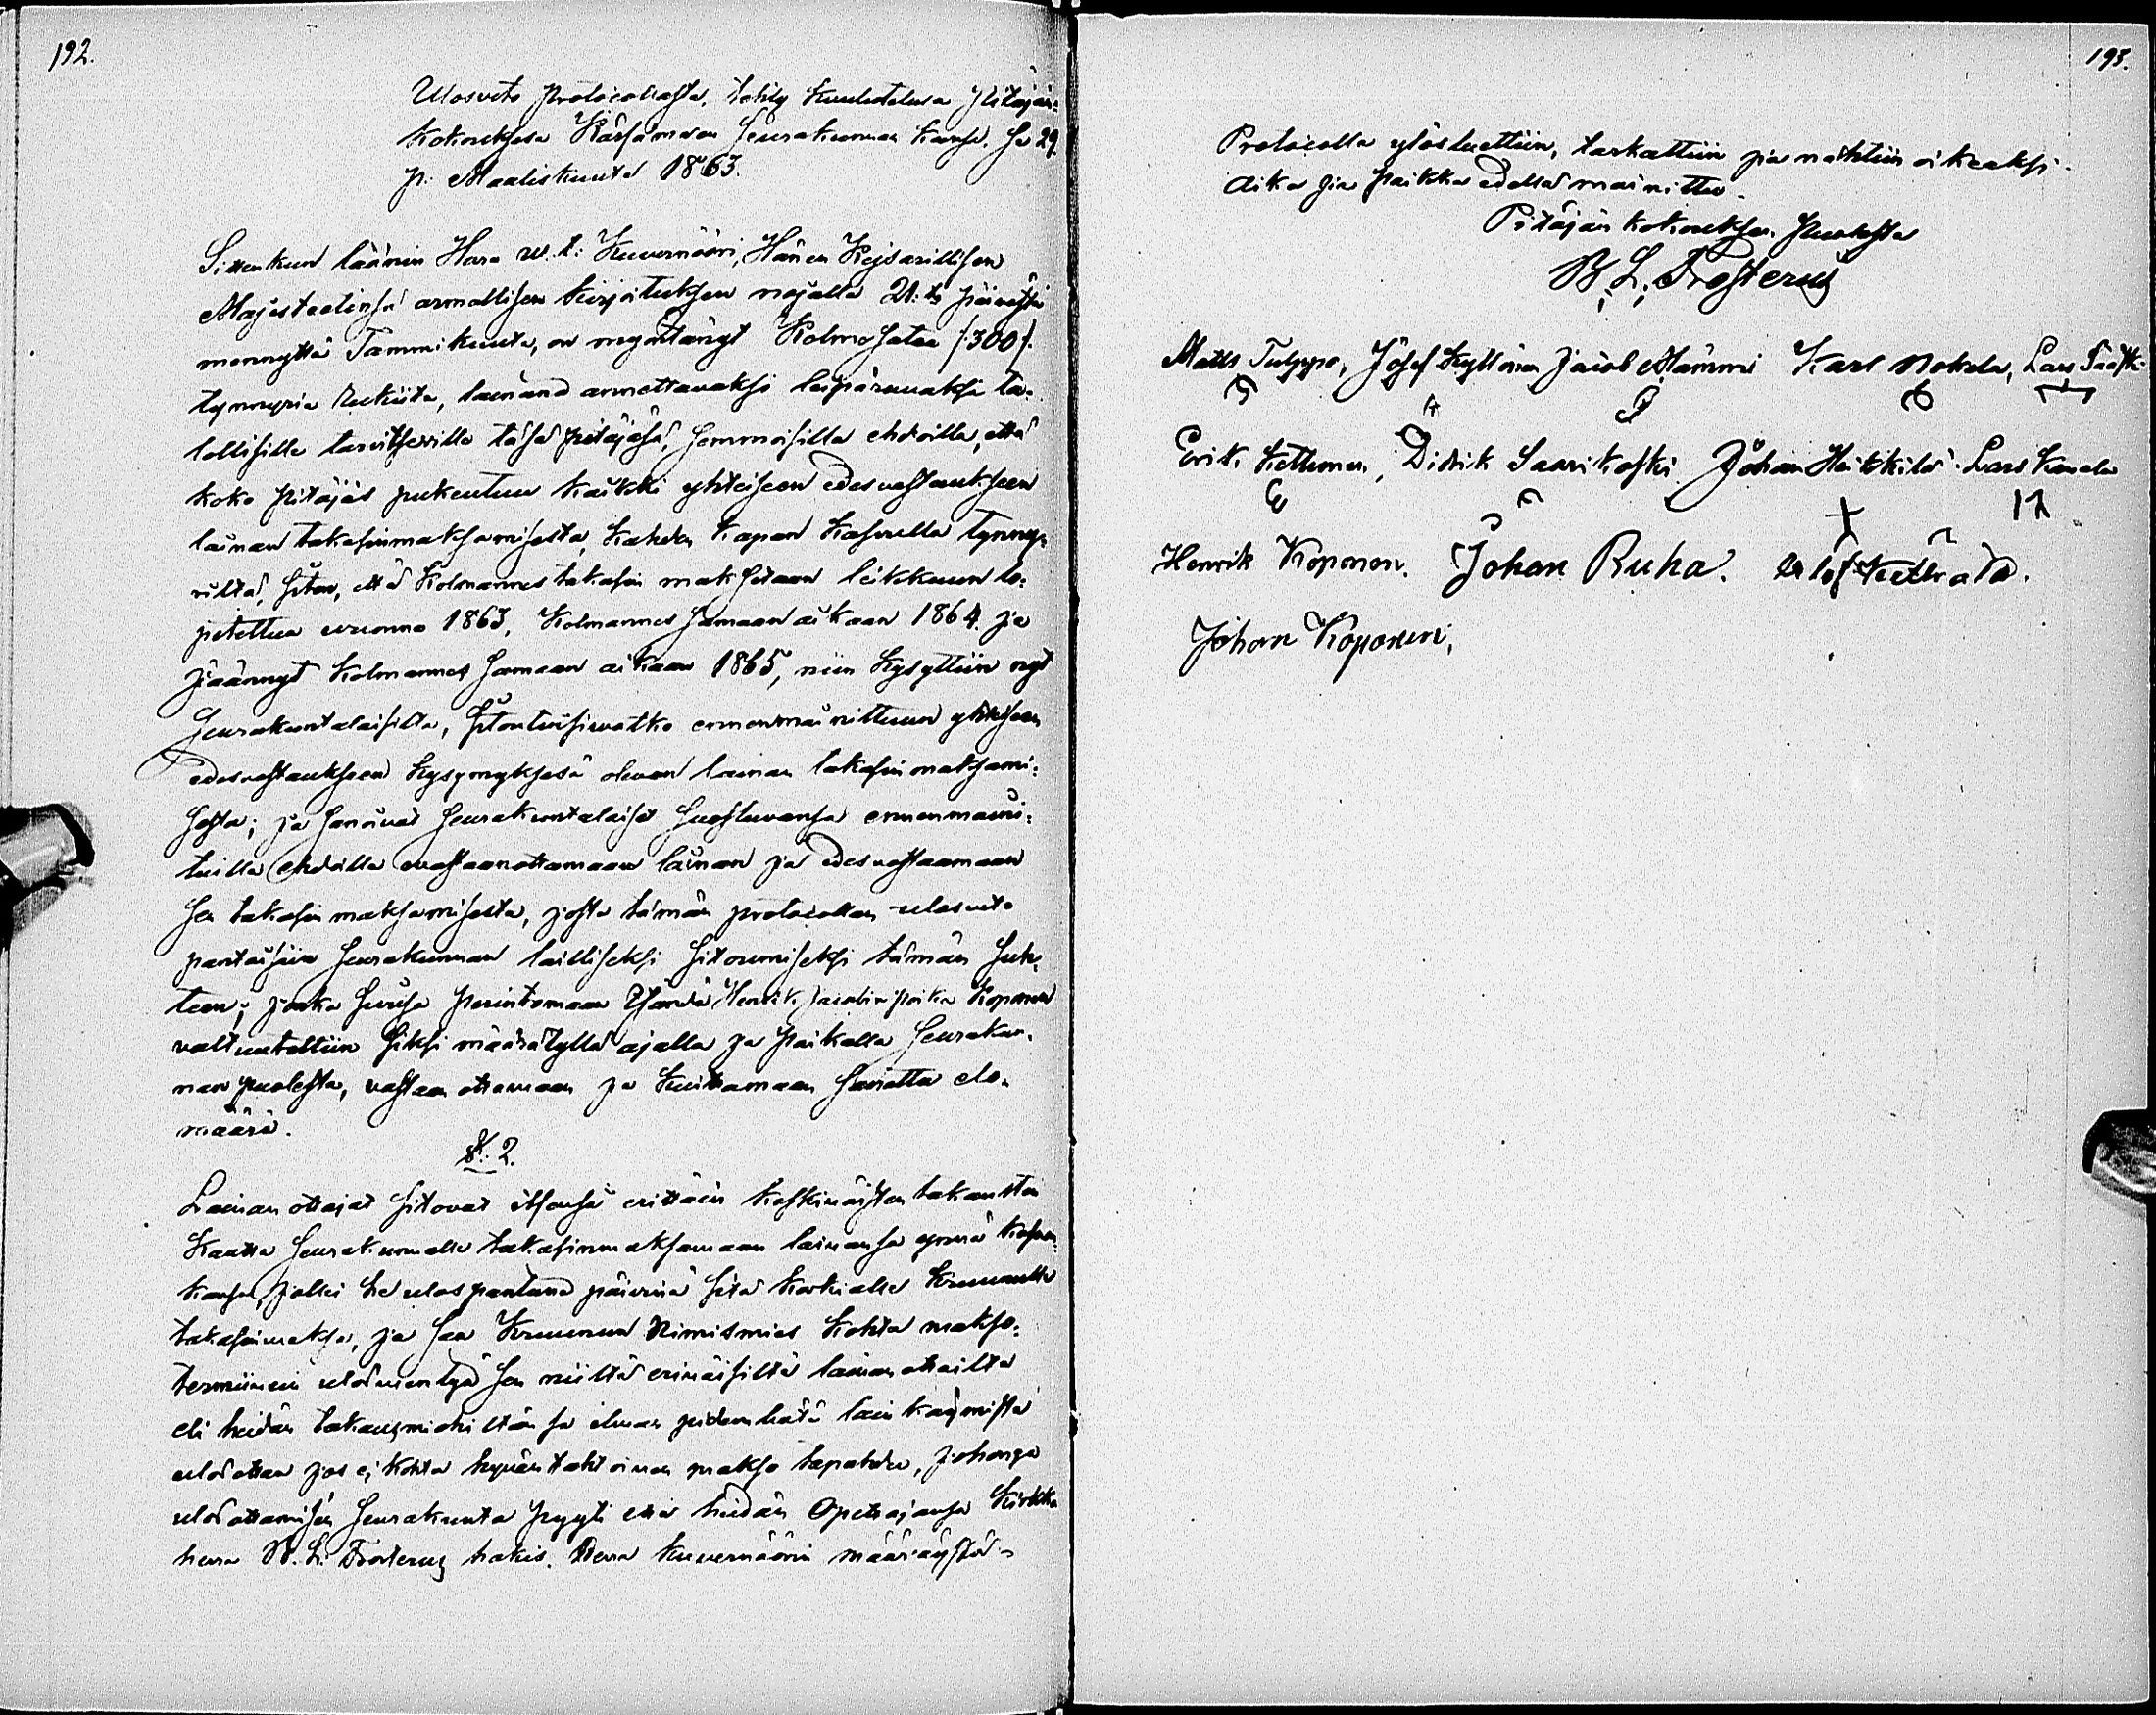 192.
Ulosveto protocollasta, tehty kuulutetusa Pitäjän-
kokouksesa Kärsämäen seurakunnan kansa, se 29.
p: Maaliskuuta 1863.
Sittenkun läänin Hera w. t: Kuvernööri, Hänen Keisarillisen
Majesteetinsä armollisen kirjoituksen nojalla 21:tä päivästä
mennyttä Tammikuuta, on myöntänyt Kolmesataa /:300/:
tynnyriä Rukiita, lainana annettavaksi leipäruuaksi ta-
lollisille tarvitseville täsä pitäjäsä, semmoisilla ehdoilla, että
koko pitäjäs pukeutuu kaikki yhteiseen edesvastaukseen
lainan takasinmaksamisesta, kahden kapan kasvulla tynny-
riltä, siten, että kolmannes takasin maksetaan leikkuun lo-
petettua vuonna 1863, kolmannes samaan aikaan 1864 ja
jäännyt kolmannes samaan aikaan 1865, niin kysyttiin nyt
Seurakuntalaisilta, sitoutuisivatko ennenmainittuun yhteiseen
edesvastaukseen kysymyksesä olevan lainan takasinmaksami-
sesta; ja sanoivat seurakuntalaiset suostuvansa ennenmaini-
tuilla ehdoilla vastaanottamaan lainan ja edesvastaamaan
sen takasin maksamisesta, josta tämän protocollan ulosveto
pantaisiin seurakunnan lailliseksi sitoumiseksi tämän suh-
teen; jonka suusa Perintömaan Isäntä Henrik Jacobinpoika Koponen
valtuutettiin siksi määrätyllä ajalla ja paikalla Seurakun-
nan puolesta, vastaan ottamaan ja kuittamaan sanottu elo-
määrä.
§: 2.
Lainan ottajat sitovat itsensä erittäin keskinäisten takausten
kautta seurakunnalle takasinmaksamaan lainansa ynnä kasvun
kansa, jollei he ulospantuna päivänä sitä korkialle kruunulle
takasinmaksa, ja saa Kruunun Nimismies kohta makso-
terminein ulosmentyä sen niiltä erinäisiltä lainan ottailta
eli heidän takausmiehiltänsä ilman pidempätä lain käymistä
ulosottaa jos ei kohta hyväntahtoinen makso tapahdu, johonga
ulosottamisen seurakunta pyyti että heidän Opettajansa Kirkko
herra B. L. Frosterus hakis Herra Kuvernöörin määräystä.
193.
Protocolla ylösluettiin, tarkattiin ja nähtiin oikeaksi.
Aika ja paikka edellä mainittu.
Pitäjän kokouksen puolesta
B. L. Frosterus
Matts Tulppo, Josef Kyllönen Jacob Hämmi Karl Nokela, Lars
Erik Kettunen, Didrik Saarikoski Johan Heikkilä Lars Kanala
Henrik Koponen. Johan Ruha.
Johan Koponen,